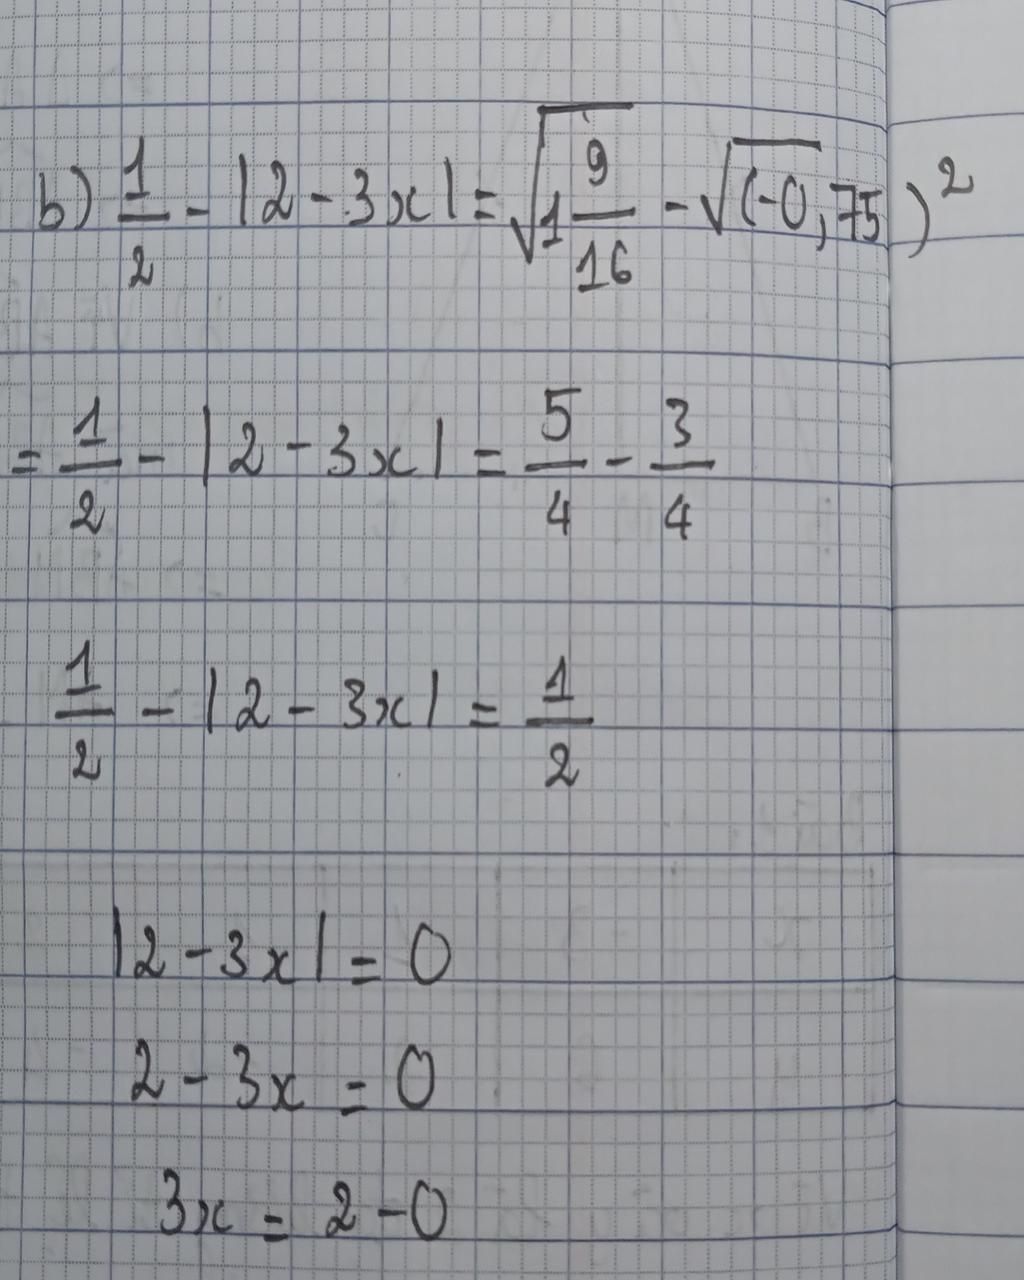 b) 1/2 - |2 - 3x| = √(1 9/16) - √(-0,75)²
= 1/2 - |2 - 3x| = 5/4 - 3/4
1/2 - |2 - 3x| = 1/2
|2 - 3x| = 0
2 - 3x = 0
3x = 2 - 0